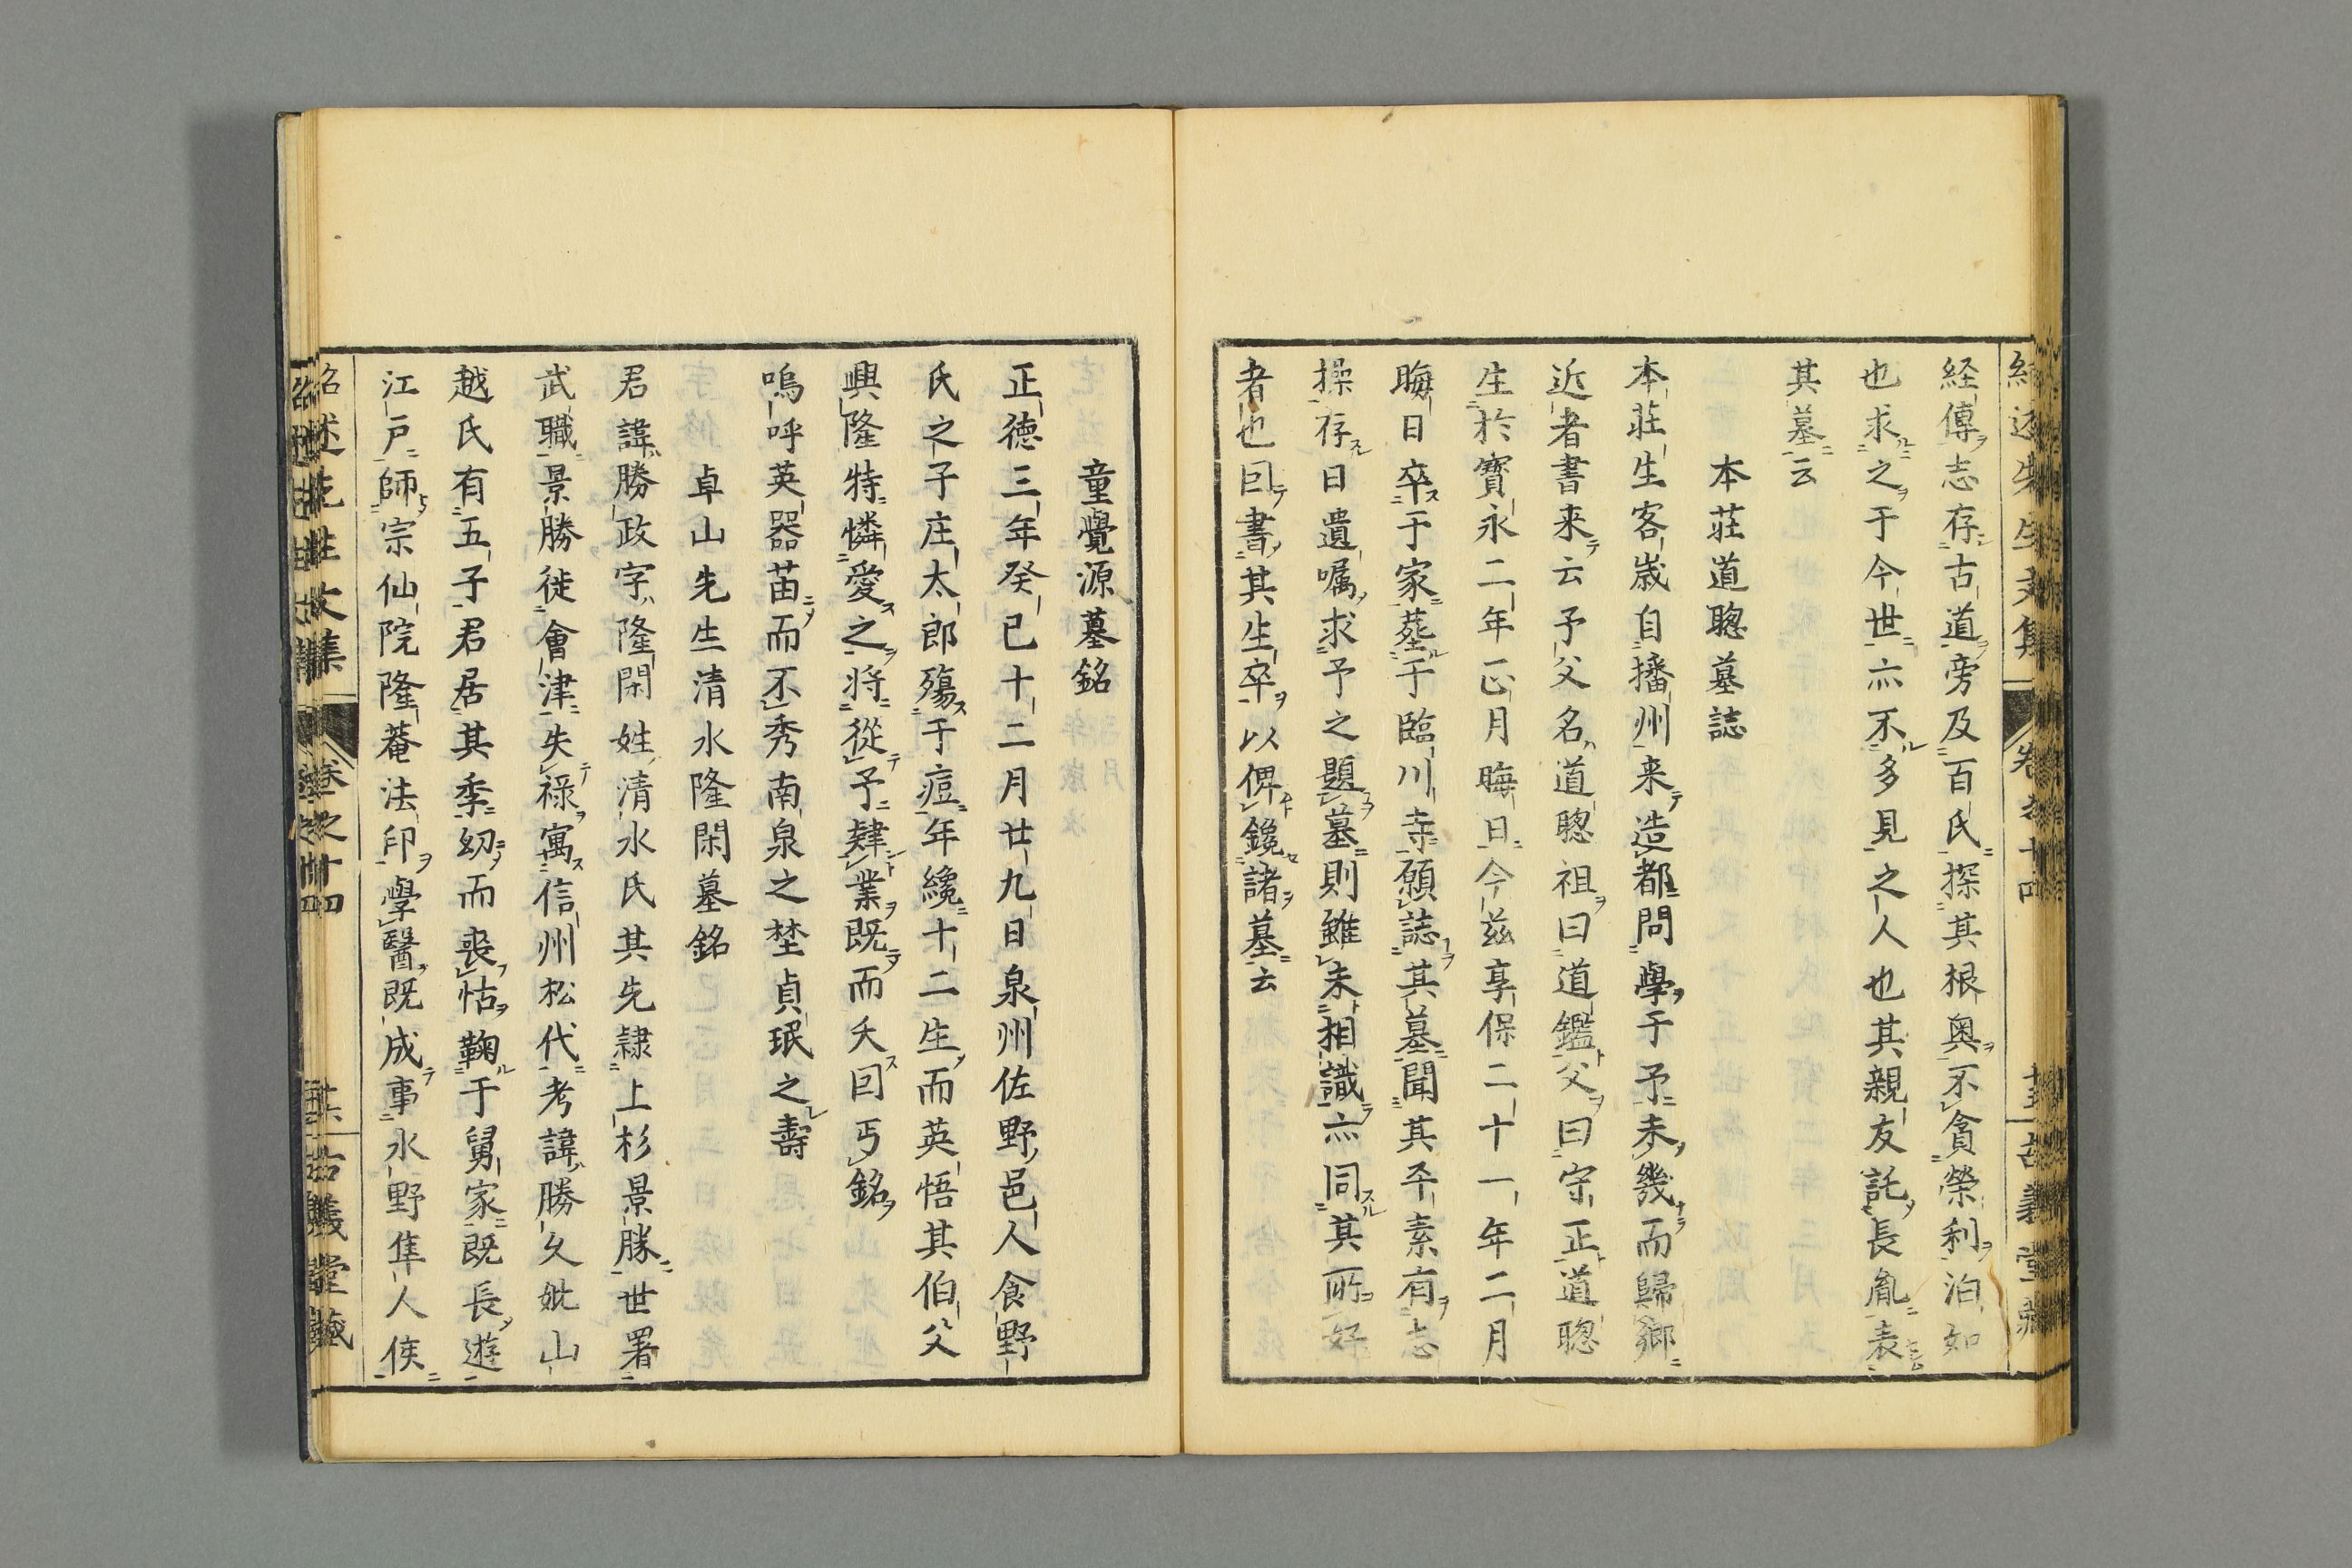 経傳志存古道旁及百氏探其根奥不貪榮利泊如
也求之于今世亦不多見之人也其親友託長胤表
其墓云
本荘道聰墓誌
本荘生客歳自播州来造都問學于予未幾而歸鄉
近者書来云予父名道聰祖曰道鑑父曰守正道聰
生於寳永二年正月晦日今茲享保二十一年二月
晦日卒于家葬于臨川寺願誌其墓聞其平素有志
操存日遺嘱求予之題墓則雖未相識亦同其所好
者也因書其生卒以俾鑱諸墓云
童覺源墓銘
正德三年癸巳十二月廿九日泉州佐野邑人食野
氏之子庄太郎殤于痘年纔十二生而英悟其伯父
興隆特憐愛之将從予肄業既而夭因丐銘
嗚呼英器苗而不秀南泉之埜貞珉之壽
卓山先生清水隆閑墓銘
君諱勝政字隆閑姓清水氏其先隷上杉景勝世署
武職景勝徙會津失禄寓信州松代考諱勝久妣山
越氏有五子君居其季幼而喪怙鞠于舅家既長遊
江戶師宗仙院隆菴法印學醫既成事水野隼人侯
紹述先生文集 卷之十四 古義堂藏